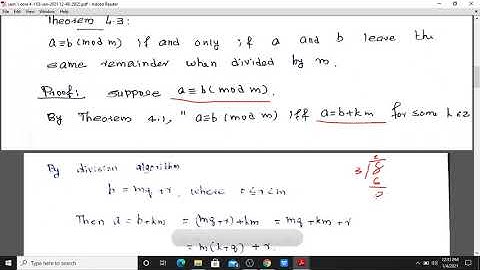 sem 1 core 4 -103-Jan-2021 12-40-29(2).pdf - Adobe Reader
Theorem 4.3:
a≡b (mod m) if and only if a and b leave the
same remainder when divided by m.
Proof: suppose a ≡ b (mod m).
By Theorem 4.1, " a≡b (mod m) iff a=b+km for some k∈Z
By division algorithm
b = mq + r, where 0≤r≤m
3 8
6
2
Then a = b+km = (mq+r)+km = mq + km + r
= m(k+q) + r.
Type here to search
12:51 PM
1/4/2021